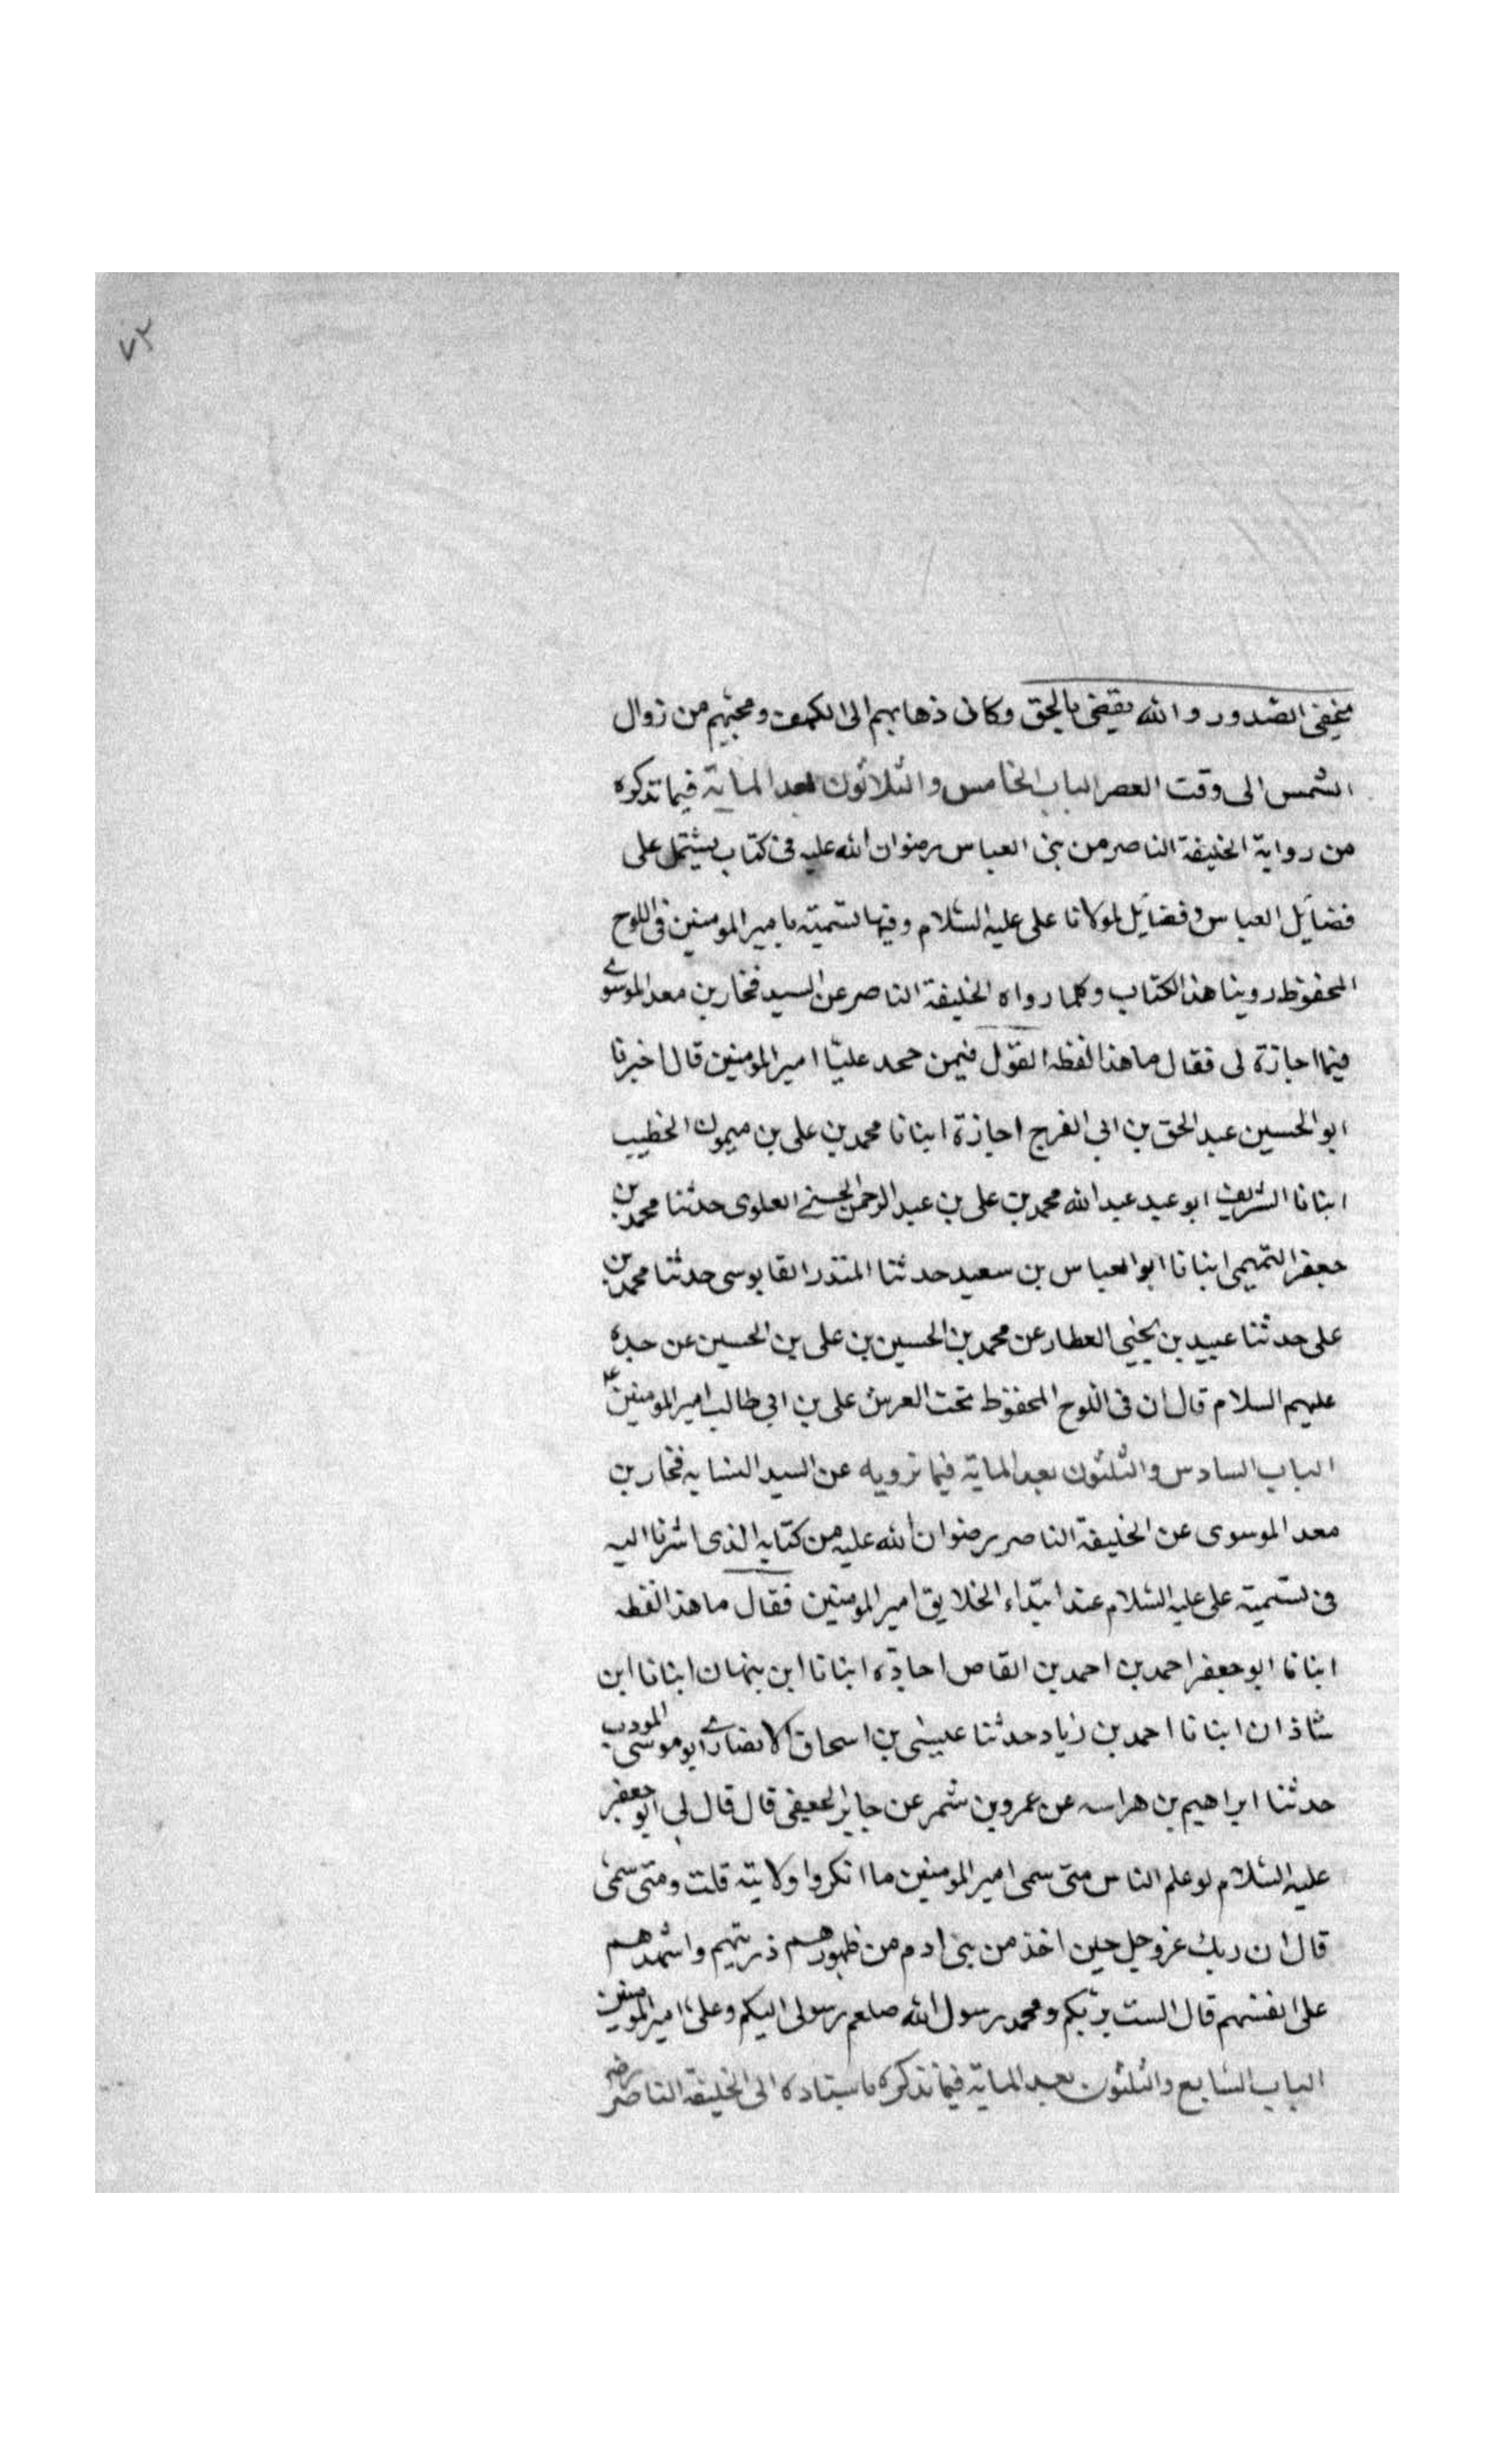 ٧٢
تخفى الصدور والله يقضى بالحق وكان ذهابهم الى الكهف ومجيئهم من زوال
الشمس الى وقت العصر الباب الخامس والثلاثون بعد الماية فيما نذكره
من رواية الخليفة الناصر من بنى العباس رضوان الله عليه فى كتاب يشتمل على
فضايل العباس وفضايل لمولانا على عليه السلام وفيها تسميته بامير المومنين فى اللوح
المحفوظ روينا هذا الكتاب وكلما رواه الخليفة الناصر عن السيد فخار بن معد الموسوى
فيما اجازة لى فقال ما هذا لفظه القول فيمن جحد عليا امير المومنين قال اخبرنا
ابو الحسين عبد الحق بن ابى الفرج اجازة انبانا محمد بن على بن ميمون الخطيب
انبانا الشريف ابو عبد عبد الله محمد بن على بن عبد الرحمن الحسنى العلوى حدثنا محمد بن
جعفر التميمى انبانا ابو العباس بن سعيد حدثنا المنذر القابوسى حدثنا محمد بن
على حدثنا عبيد بن يحيى العطار عن محمد بن الحسين بن على بن الحسين عن جده
عليهم السلام قال ان فى اللوح المحفوظ تحت العرش على بن ابى طالب امير المومنين
الباب السادس والثلثون بعد الماية فيما نرويه عن السيد النسابه فخار بن
معد الموسوى عن الخليفة الناصر رضوان الله عليه من كتابه الذى اشرنا اليه
فى تسميته على عليه السلام عند ابتداء الخلايق امير المومنين فقال ما هذا لفظه
انبانا ابو جعفر احمد بن احمد بن القاص اجازه انبانا ابن بنهان انبانا ابن
شاذان انبانا احمد بن زياد حدثنا عيسى بن اسحاق الانصارى ابو موسى المودب
حدثنا ابراهيم بن هراسه عن عمرو بن شمر عن جابر الجعفى قال قال لى ابو جعفر
عليه السلام لو علم الناس متى سمى امير المومنين ما انكروا ولايته قلت ومتى سمى
قال ان ربك عز وجل حين اخذ من بنى ادم من ظهورهم ذريتهم واشهدهم
على انفسهم قال الست بربكم ومحمد رسول الله صلعم رسولى اليكم وعلى امير المومنين
الباب السابع والثلثون بعد الماية فيما نذكره باسناده الى الخليفة الناصر رضى